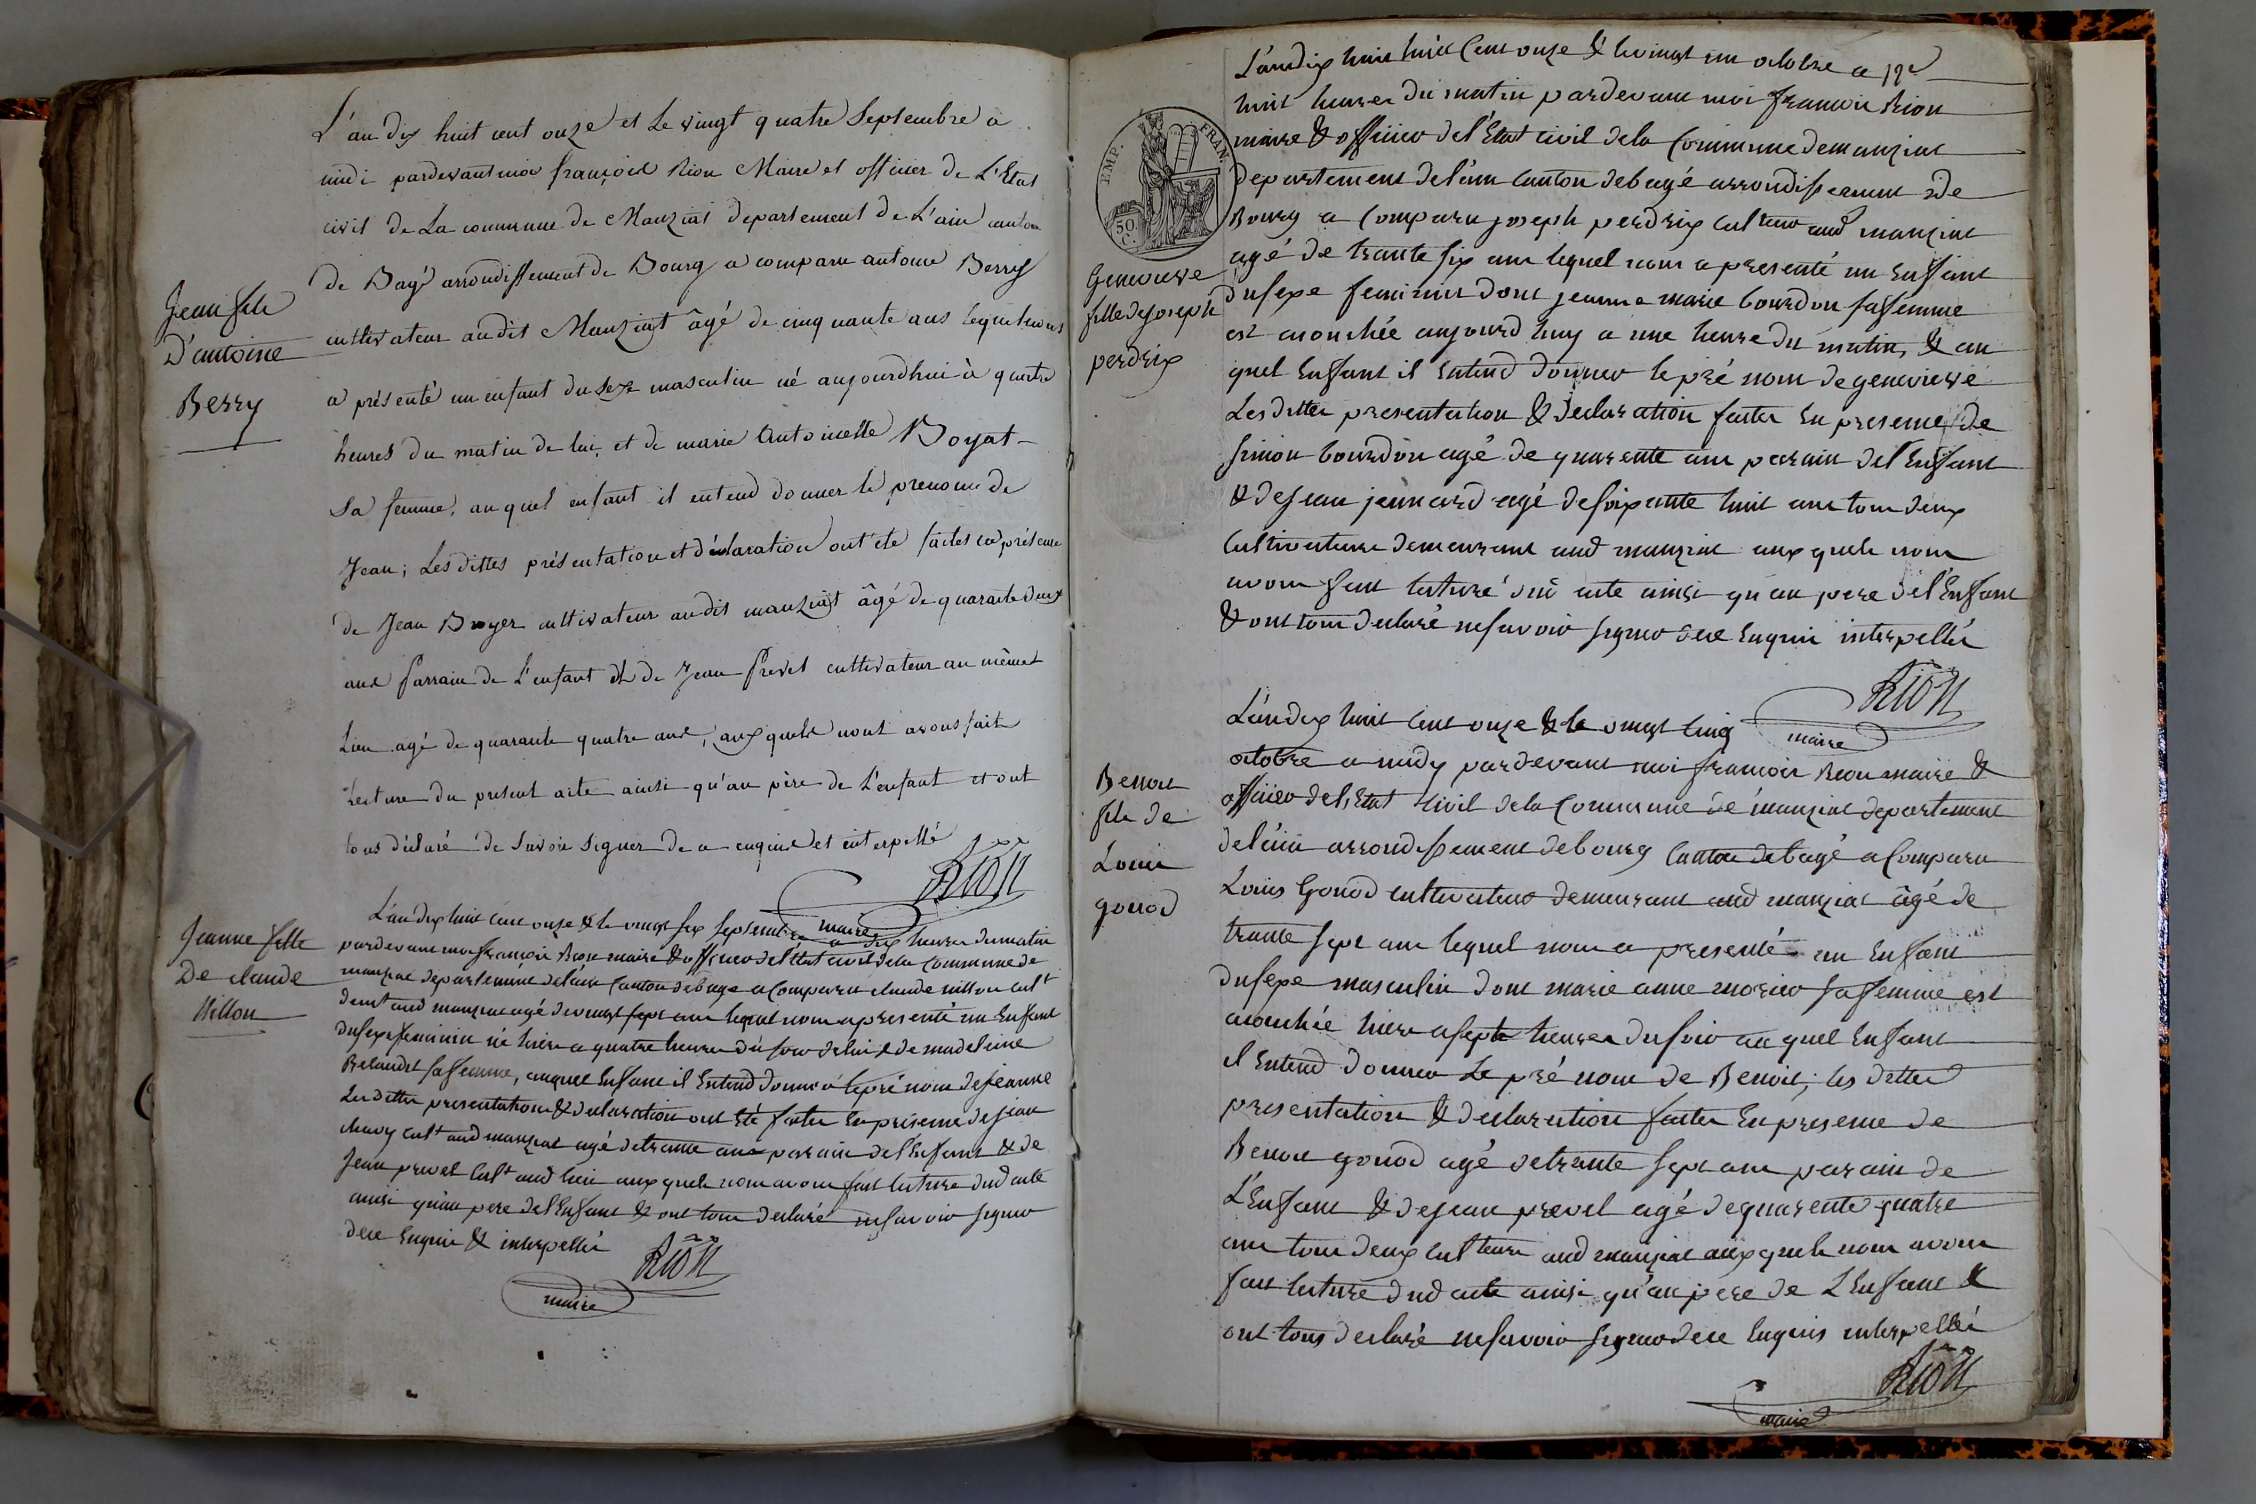 Jean fils
D'antoine
Berry
L'an dix huit cent onze et Le vingt quatre Septembre à
midi pardevant moi françois Rion Maire et officier de L'Etat
civil de La commune de Manziat departement de L'ain canton
de Bagé arrondissement de Bourg a comparu antoine Berry
cultivateur audit Manziat âgé de cinquante ans lequel nous
a présenté un enfant du sexe masculin né aujourdhui à quatre
heures du matin de lui et de marie antoinette Boyat
Sa femme, auquel enfant il entend donner le prenom de
Jean; Les dittes présentation et déclaration ont été faites en présence
de Jean Boyer cultivateur audit manziat âgé de quarante deux
ans Parrain de L'enfant & de Jean Prevel cultivateur au même
Lieu agé de quarante quatre ans, auxquels nous avons fait
Lecture du présent acte ainsi qu'au père de L'enfant et ont
tous déclaré de savoir signer de a enquis et interpellé
Rion
maire
Jeanne fille
De claude
Millon
L'an dix huit cent onze & le vingt six septembre a dix heures du matin
pardevant moi françois Rion maire & officier de l'état civil de la Commune de
manziat departement de l'ain Canton de bagé a Comparu claude millon cult
demt aud manziat agé de vingt sept ans lequel nous a presenté un Enfant
du sexe feminin né hiere a quatre heures du soir de lui & de madeleine
sa femme, auquel Enfant il Entend donner le pré nom de Jeanne
Les dittes presentation & declaration ont été faites En présence de jean
chavy cult aud manziat agé de trente ans parain de l'Enfant & de
Jean prevel cult aud lieu auxquels nous avons fait lecture dud acte
ainsi qu'au pere de l'Enfant & ont tous declaré ne savoir signer
de ce Enquis & interpellés
Rion
maire
EMP. FRAN.
50
C.
Genevieve
fille de Joseph
perdrix
L'an dix huit huit Cent onze & le vingt un octobre a
huit heures du matin pardevant moi françois Rion
maire & officier de l'Etat civil de la Commune de manziat
departement de l'ain Canton de bagé arrondissement de
Bourg a Comparu joseph perdrix cultteur aud manziat
agé de trante six ans lequel nous a presenté un Enfant
du sexe feminin dont jeanne marie bourdon sa femme
est acouchée aujourd huy a une heure du matin, & au
quel Enfant il Entend donner le pré nom de genevieve
Les dittes presentation & declaration faites En presence de
simon bourdon agé de quarente ans parain de l'Enfant
& de jean jannard agé de soixante huit ans tous deux
Cultivateurs demeurant aud manziat auxquels nous
avons fait lecture dud acte ainsi qu'au pere de l'Enfant
& ont tous declaré ne savoir signer de ce Enquis interpellés
Rion
maire
Benoit
fils de
Louis
gonod
L'an dix huit cent onze & le vingt cinq
octobre a midy pardevant moi françois Rion maire &
officier de l'Etat civil de la Commune de manziat departement
de l'ain arrondissement de bourg Canton de bagé a Comparu
Louis Gonod cultivateur demeurant aud manziat âgé de
trante sept ans lequel nous a presenté un Enfant
du sexe masculin dont marie anne morier sa femme est
acouchée hiere a sept heures du soir au quel Enfant
il Entend donner Le pré nom de Benoit; les dittes
presentation & declaration faites En presence de
Benoit gonod agé de trante sept ans parain de
L'Enfant & de jean prevel agé de quarente quatre
ans tous deux cultteurs aud manziat auxquels nous avons
fait lecture dud acte ainsi qu'au pere de L'Enfant &
ont tous declaré ne savoir signer de ce Enquis interpellés
Rion
maire